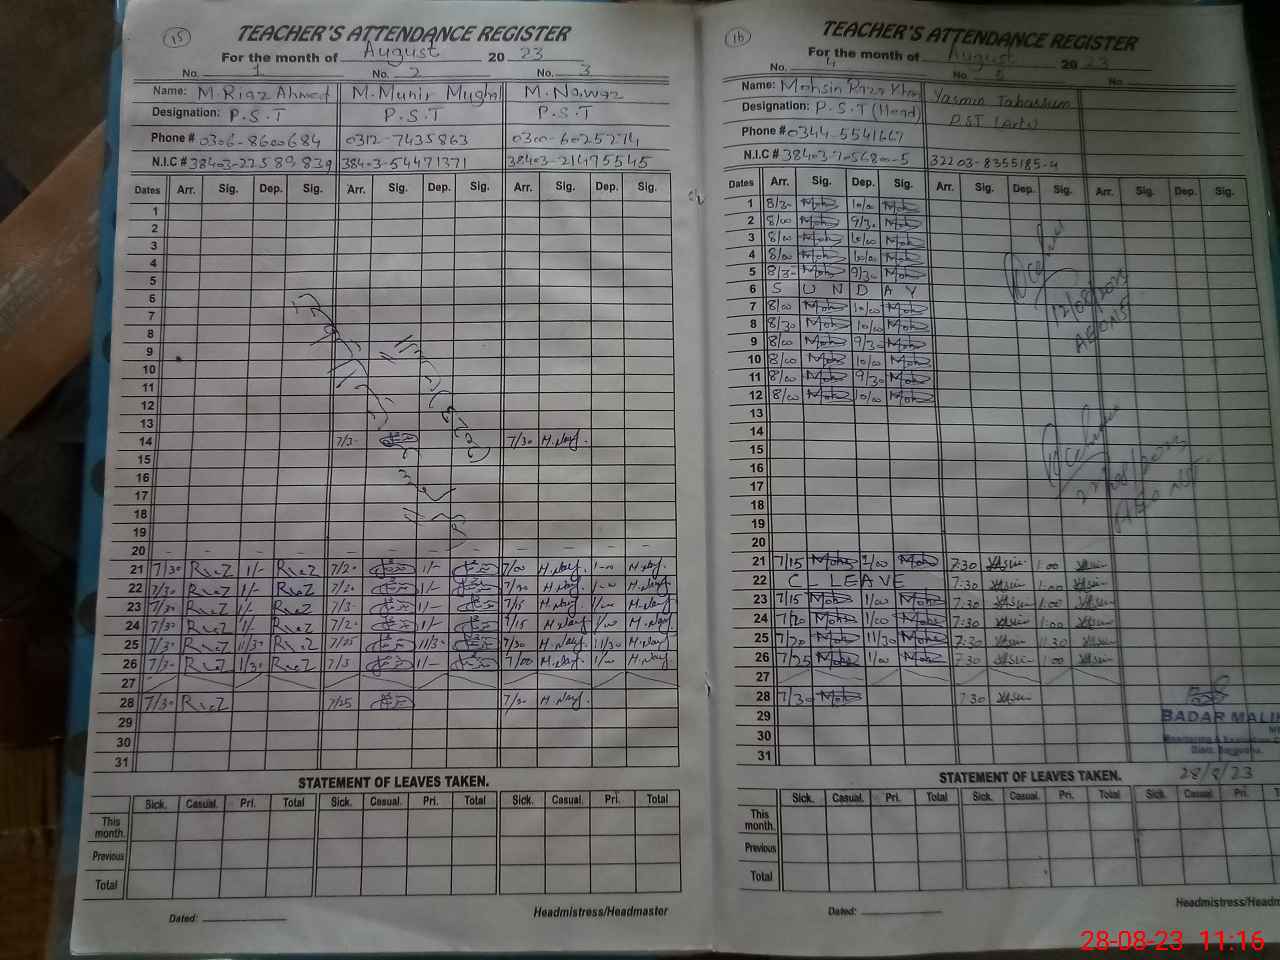 15
TEACHER'S ATTENDANCE REGISTER
For the month of August 20 23
No. 1 No. 2 No. 3
Name: M.Riaz Ahmed M.Munir Mughal M.Nawaz
Designation: P.S.T P.S.T P.S.T
Phone # 0306-8600684 0312-7435863 0300-6025274
N.I.C # 38403-22589839 38403-54471371 38403-21475545
Dates Arr. Sig. Dep. Sig. Arr. Sig. Dep. Sig. Arr. Sig. Dep. Sig.
1
2
3
4
5
6
7
8
9
10
11
12
13
14 7/3- 7/30 M.Nawaz
15
16
17
18
19
20 - - - - - - - - - - - -
21 7/30 RiaZ 1/- RiaZ 7/20 1/- 7/00 M.Nawaz 1-00 M.Nawaz
22 7/30 RiaZ 1/- RiaZ 7/20 1/- M.Nawaz 1-00 M.Nawaz
23 7/30 RiaZ 1/- RiaZ 7/3- 1/- 7/15 M.Nawaz 1/00 M.Nawaz
24 7/30 RiaZ 1/- RiaZ 7/20 1/- 7/15 M.Nawaz 1/00 M.Nawaz
25 7/30 RiaZ 11/30 RiaZ 7/25 11/30 7/30 M.Nawaz 11/30 M.Nawaz
26 7/3- RiaZ 1/30 RiaZ 7/3 1/- 7/00 M.Nawaz 1/00 M.Nawaz
27
28 7/30 RiaZ 7/25 7/20 M.Nawaz
29
30
31
STATEMENT OF LEAVES TAKEN.
Sick. Casual. Pri. Total Sick. Casual. Pri. Total Sick. Casual. Pri. Total
This month.
Previous
Total
Dated: Headmistress/Headmaster
16
TEACHER'S ATTENDANCE REGISTER
For the month of August 20 23
No. 4 No. 5 No.
Name: Mohsin Raza Khan Yasmin Tabassum
Designation: P.S.T (Head) PST (Arts)
Phone # 0344-5541667
N.I.C # 38403-7056800-5 32203-8355185-4
Dates Arr. Sig. Dep. Sig. Arr. Sig. Dep. Sig. Arr. Sig. Dep. Sig.
1 8/30 Moh 10/00 Moh
2 8/00 Moh 9/30 Moh
3 8/00 Moh 10/00 Moh
4 8/00 Moh 10/00 Moh
5 8/3- Moh 9/30 Moh
6 S U N D A Y
7 8/00 Moh 10/00 Moh
8 8/30 Moh 10/00 Moh
9 8/00 Moh 9/30 Moh
10 8/00 Moh 10/00 Moh
11 8/00 Moh 9/30 Moh
12 8/00 Moh 10/00 Moh
12/08/2023
13
14
15
16
17
22/08/2023
18
19
20
21 7/15 Moh 1/00 Moh 7:30 Yasmin 1:00 Yasmin
22 C L LEAVE 7:30 Yasmin 1:00 Yasmin
23 7/15 Moh 1/00 Moh 7:30 Yasmin 1:00 Yasmin
24 7/20 Moh 1/00 Moh 7:30 Yasmin 1:00 Yasmin
25 7/20 Moh 11/30 Moh 7:30 Yasmin 11:30 Yasmin
26 7/25 Moh 1/00 Moh 7:30 Yasmin 1:00 Yasmin
27
28 7/30 Moh 7:30 Yasmin
29
30
31
BADAR MALIK
28/8/23
STATEMENT OF LEAVES TAKEN.
Sick. Casual. Pri. Total Sick. Casual. Pri. Total Sick. Casual. Pri.
This month.
Previous
Total
Dated:
28-08-23 11:16